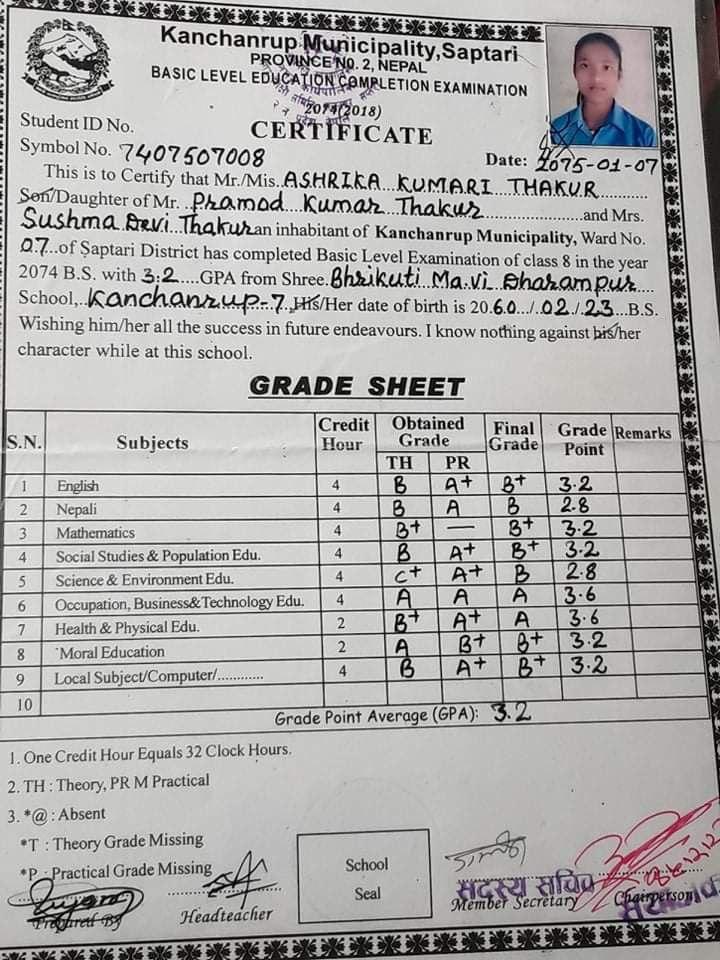 Kanchanrup Municipality,Saptari
PROVINCE No. 2, NEPAL
BASIC LEVEL EDUCATION COMPLETION EXAMINATION
2074(2018)
CERTIFICATE
Student ID No.
Symbol No. 7407507008
Date: 2075-01-07
This is to Certify that Mr./Mis. ASHRIKA KUMARI THAKUR
Son/Daughter of Mr. Pramod Kumar Thakur and Mrs.
Sushma Devi Thakur an inhabitant of Kanchanrup Municipality, Ward No.
07 of Saptari District has completed Basic Level Examination of class 8 in the year
2074 B.S. with 3.2 GPA from Shree. Bhrikuti Ma.vi Dharampur
School, Kanchanrup-7 His/Her date of birth is 2060/02/23 B.S.
Wishing him/her all the success in future endeavours. I know nothing against his/her
character while at this school.
GRADE SHEET
S.N. Subjects Credit Hour Obtained Grade TH PR Final Grade Grade Point Remarks
1 English 4 B A+ B+ 3.2
2 Nepali 4 B A B 2.8
3 Mathematics 4 B+ — B+ 3.2
4 Social Studies & Population Edu. 4 B A+ B+ 3.2
5 Science & Environment Edu. 4 C+ A+ B 2.8
6 Occupation, Business&Technology Edu. 4 A A A 3.6
7 Health & Physical Edu. 2 B+ A+ A 3.6
8 Moral Education 2 A B+ B+ 3.2
9 Local Subject/Computer/............ 4 B A+ B+ 3.2
10
Grade Point Average (GPA): 3.2
1. One Credit Hour Equals 32 Clock Hours.
2. TH : Theory, PR M Practical
3. *@ : Absent
*T : Theory Grade Missing
*P : Practical Grade Missing
School
Seal
Prepared By
Headteacher
सदस्य सचिव
Member Secretary
Chairperson